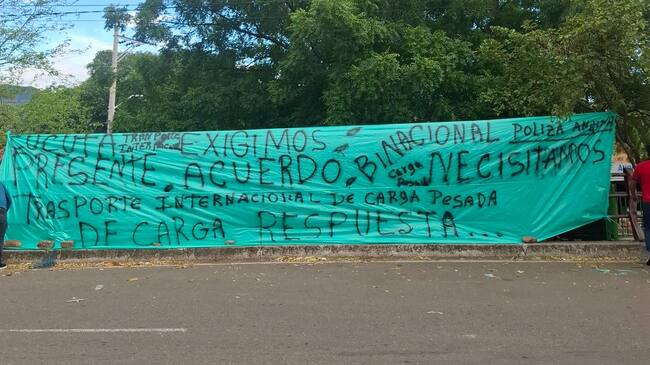 CUCUTA TRANPORTE INTER EXIGIMOS BINACIONAL POLIZA ANDINA
PRESENTE. ACUERDO. CARGA PESADA NECISITAMOS
TRASPORTE INTERNACIONAL DE CARGA PESADA
DE CARGA RESPUESTA....